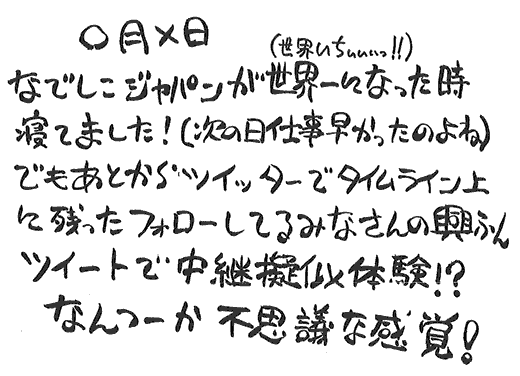 〇月×日
(世界いちぃぃぃっ!!)
なでしこジャパンが世界一になった時
寝てました!(次の日仕事早かったのよね)
でもあとからツイッターでタイムライン上
に残ったフォローしてるみなさんの興ふん
ツイートで中継擬似体験!?
なんつーか不思議な感覚!